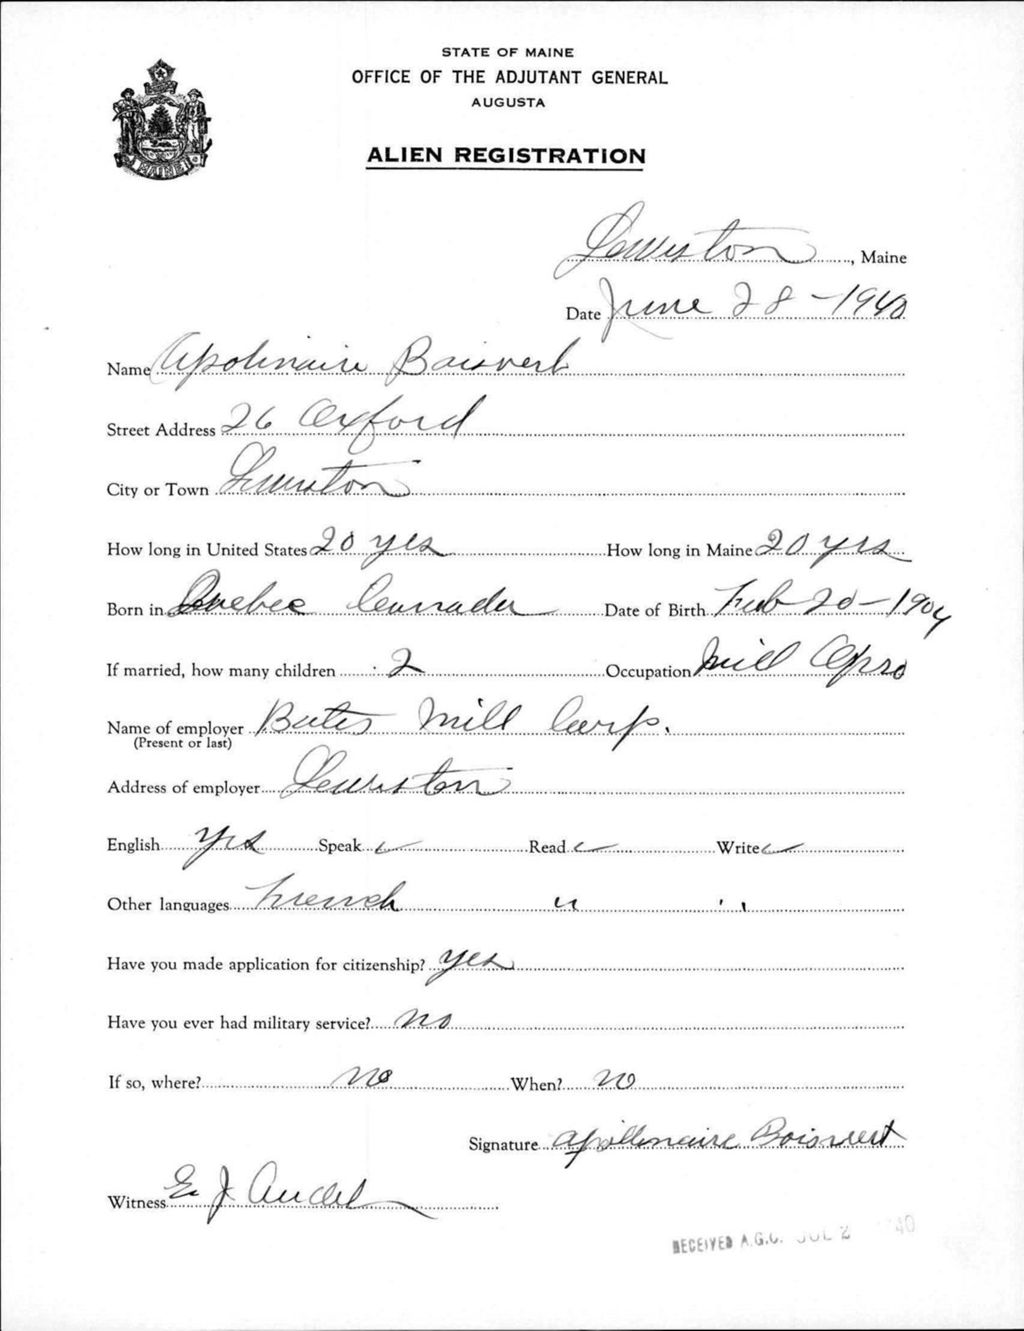 STATE OF MAINE
OFFICE OF THE ADJUTANT GENERAL
AUGUSTA
ALIEN REGISTRATION
MAINE
Lewiston, Maine
Date June 28 - 1940
Name Apolinaire Boisvert
Street Address 26 Oxford
City or Town Lewiston
How long in United States 20 yrs How long in Maine 20 yrs
Born in Quebec Canada Date of Birth Feb 20 - 1904
If married, how many children 2 Occupation Mill Opr
Name of employer Bates Mill Corp.
(Present or last)
Address of employer Lewiston
English Yes Speak ✓ Read ✓ Write ✓
Other languages French " "
Have you made application for citizenship? yes
Have you ever had military service? no
If so, where? no When? no
Signature Apollinaire Boisvert
Witness E. J.
RECEIVED A.G.O. JUL 2 40